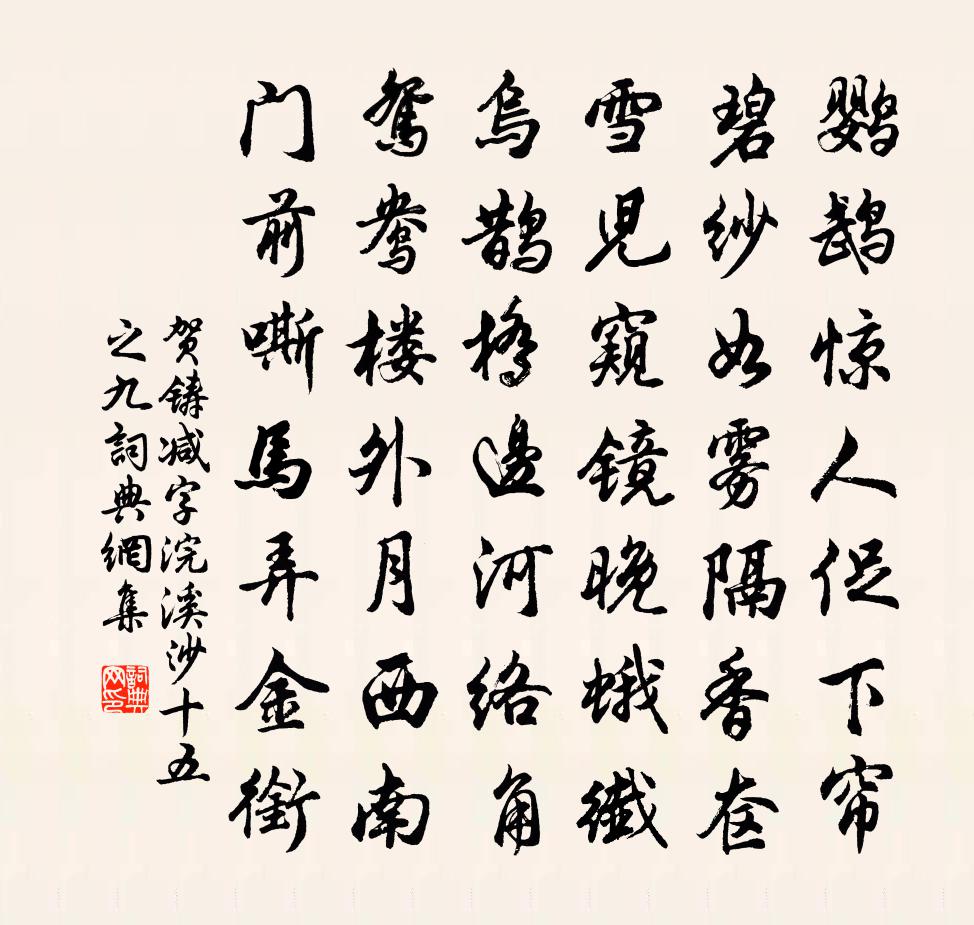 鹦鹉惊人促下帘
碧纱如雾隔香奁
雪児窥镜晚蛾纖
烏鹊橋邊河络角
鸳鸯楼外月西南
门前嘶馬弄金銜
贺鑄减字浣溪沙十五
之九詞典網集
詞典网印